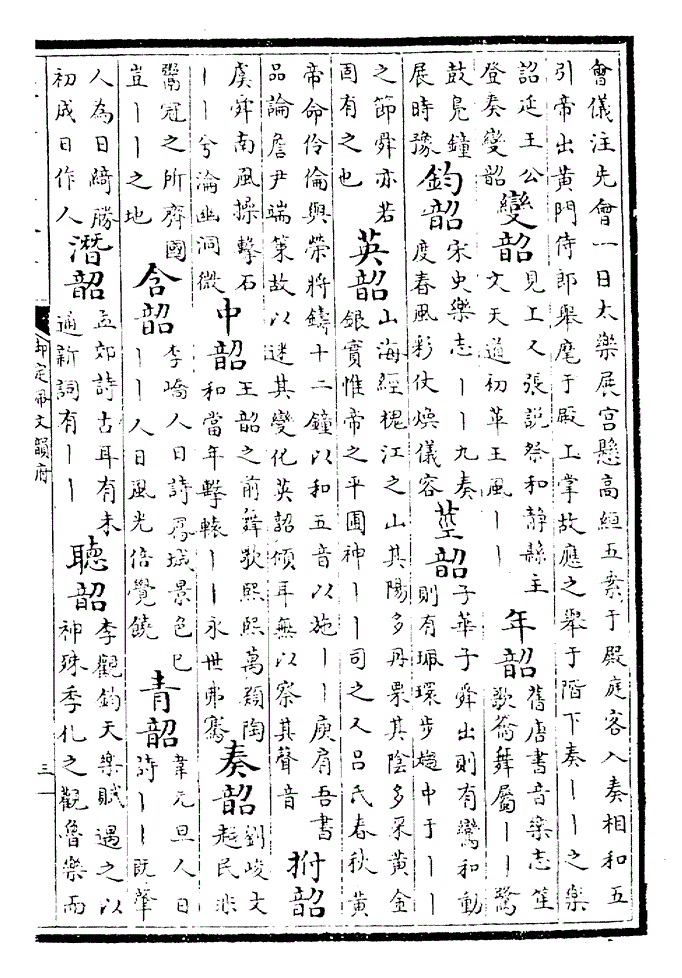 會儀注先會一日太樂展宮懸高絙五案于殿庭客入奏相和五
引帝出黃門侍郎舉麾于殿上掌故應之舉于階下奏丨丨之樂
詔延王公
登奏變韶
變韶
見上又張説祭和靜縣主
文天道初革王風丨丨
年韶
舊唐書音樂志笙
歌喬舞屬丨丨驚
鼓鳧鐘
展時豫
鈞韶
宋史樂志丨丨九奏
度春風彩仗煥儀容
莖韶
子華子舜出則有鸞和動
則有珮環步趨中于丨丨
之節舜亦若
固有之也
英韶
山海經槐江之山其陽多丹粟其陰多采黃金
銀實惟帝之平圃神丨丨司之又吕氏春秋黃
帝命伶倫與榮將鑄十二鐘以和五音以施丨丨庾肩吾書
品論詹尹端策故以迷其變化英韶傾耳無以察其聲音
拊韶
虞舜南風操擊石
丨丨兮淪幽洞微
中韶
王韶之前舞歌熙熙萬類陶
和當年擊轅丨丨永世弗騫
奏韶
劉峻文
越民非
鬻冠之所齊國
豈丨丨之地
含韶
李嶠人日詩鳳城景色已
丨丨人日風光倍覺饒
青韶
韋元旦人日
詩丨丨既肇
人為日綺勝
初成日作人
潛韶
孟郊詩古耳有未
通新詞有丨丨
聽韶
李觀鈞天樂賦遇之以
神殊季札之觀魯樂而
御定佩文韻府
三